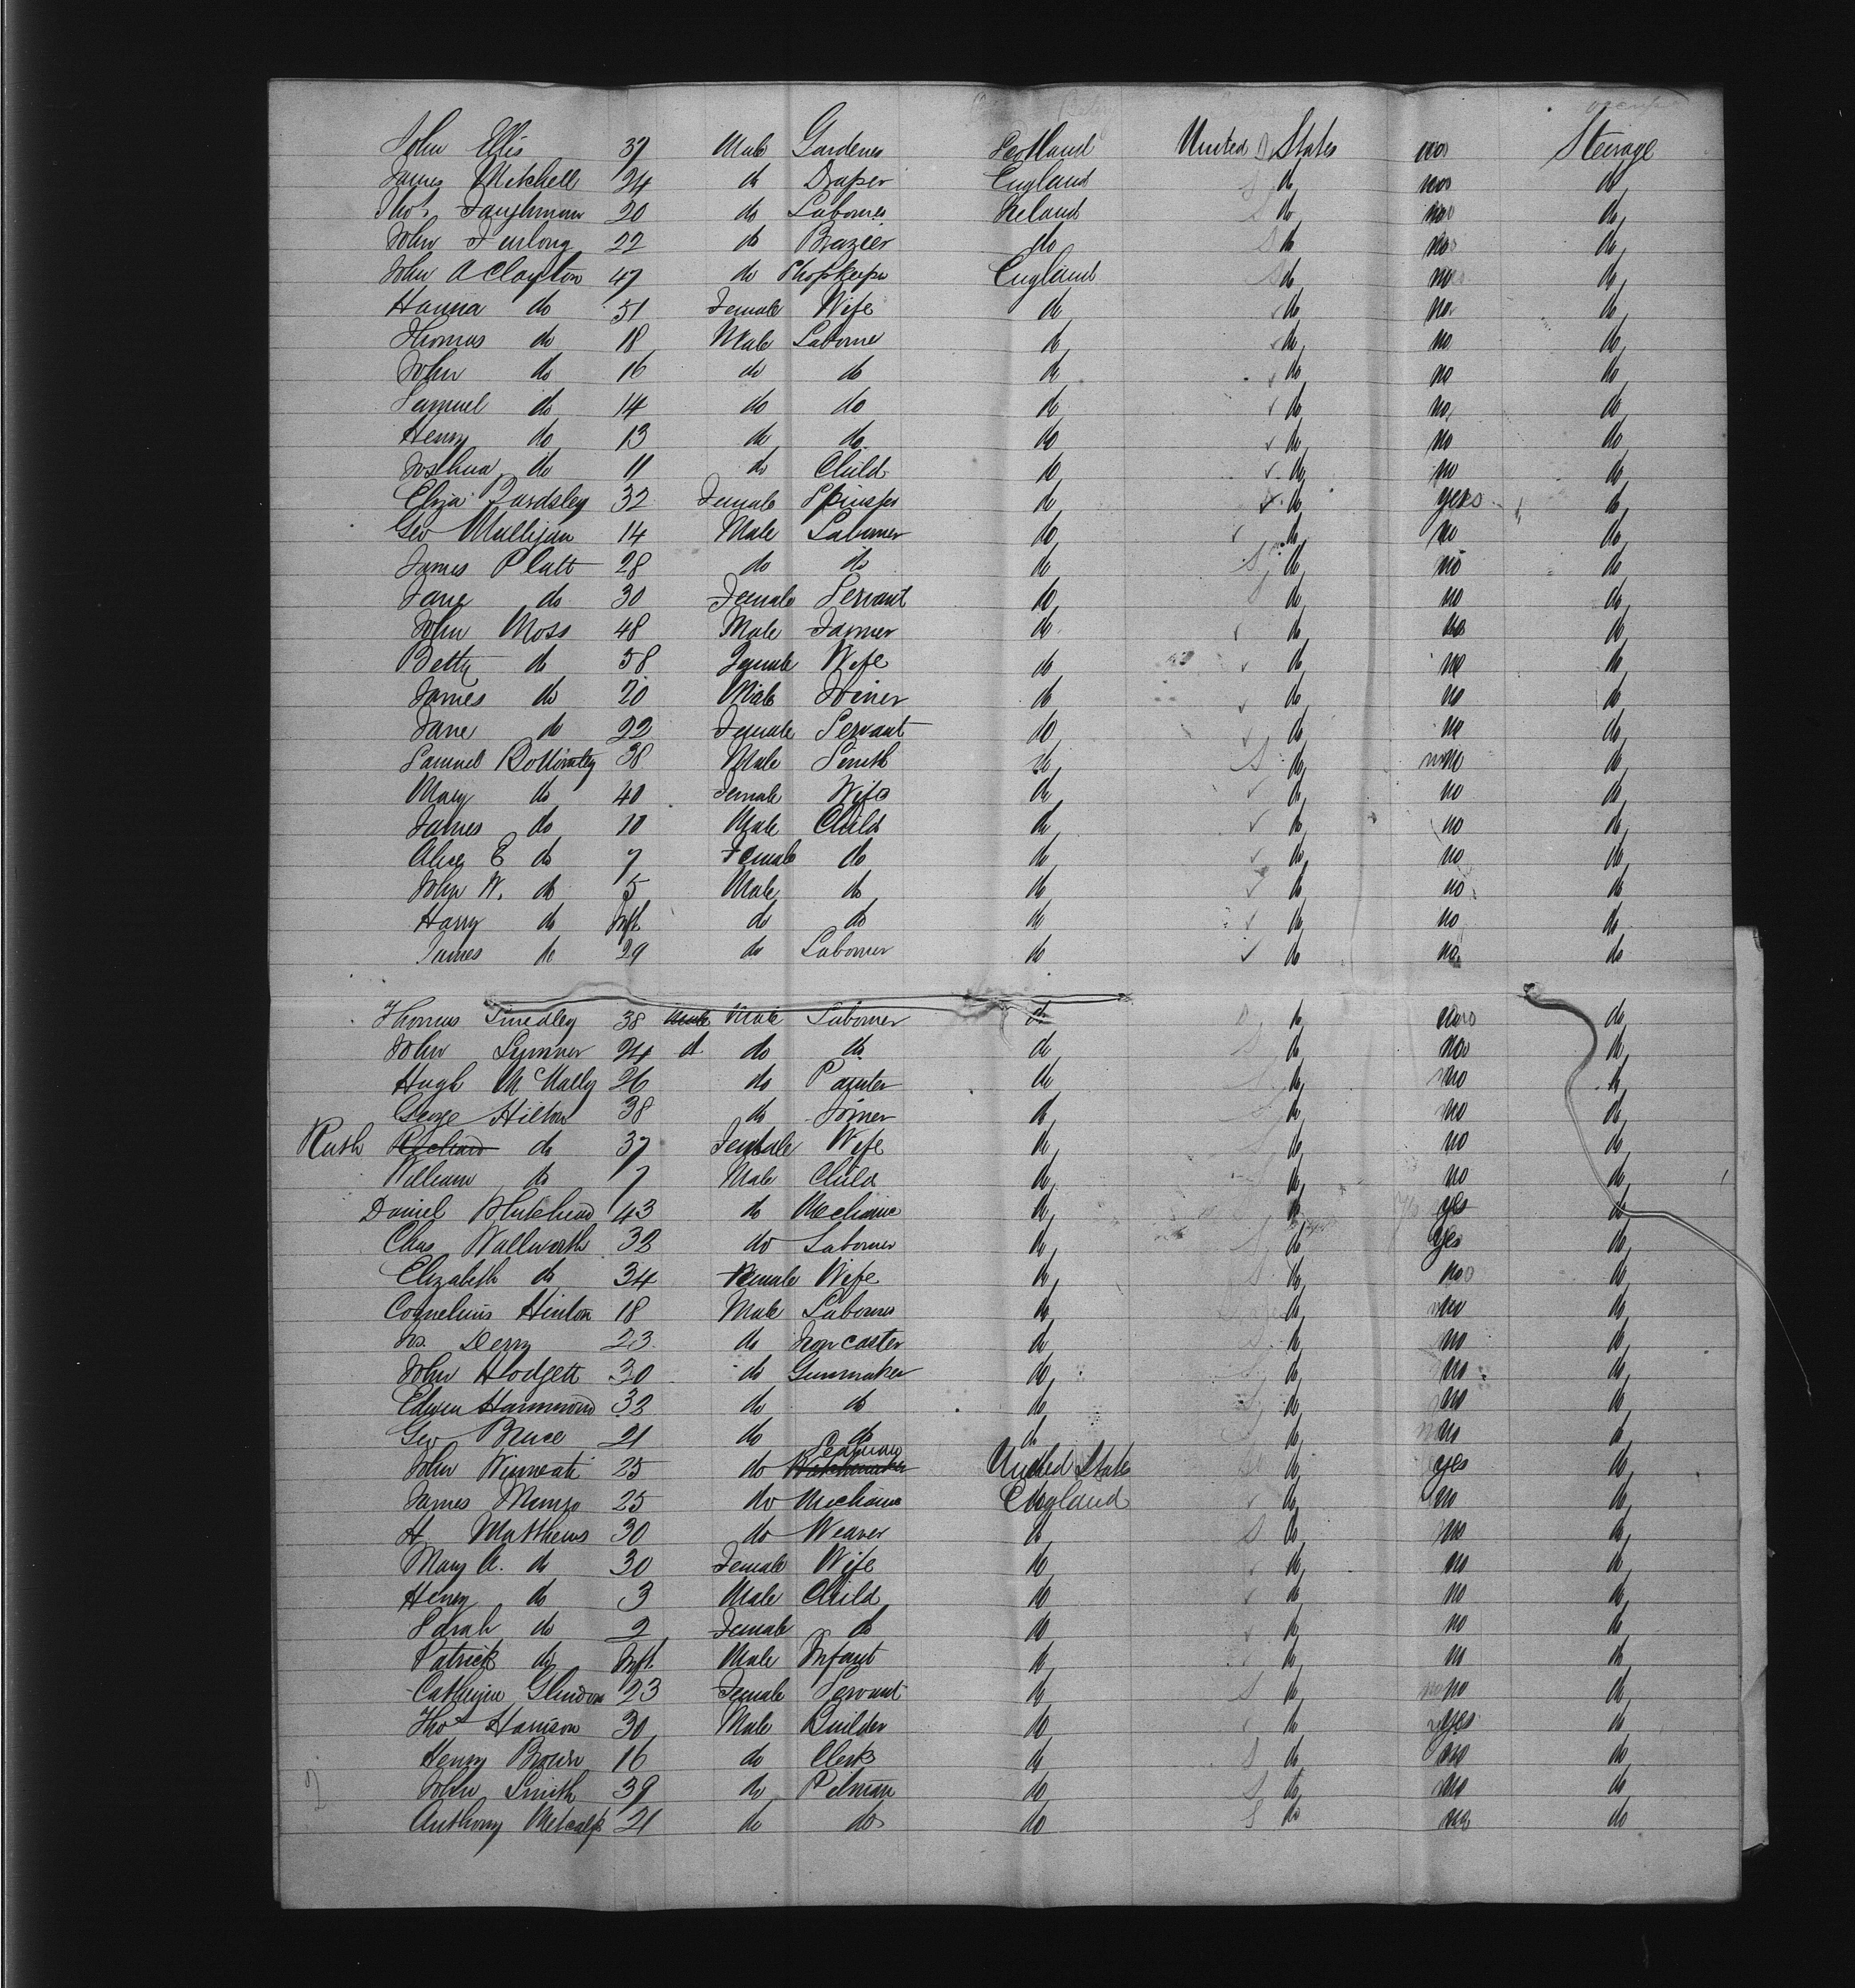 John Ellis 37 Male Gardener Scotland United States no Steirage
James Mitchell 24 do Draper England do no do
Thos. Faughman 20 do Laborer Ireland do no do
John Furlong 22 do Brazier do do no do
John A Clayton 47 do Shopkeepr England do no do
Hanna do 51 Female Wife do do no do
Thomas do 18 Male Laborer do do no do
John do 16 do do do do no do
Samuel do 14 do do do do no do
Henry do 13 do do do do no do
Joshua do 11 do Child do do no do
Eliza Bardsley 32 Female Spinster do do yes do
Geo Mulligan 14 Male Laborer do do no do
James Platt 28 do do do do no do
Jane do 30 Female Servant do do no do
John Moss 48 Male Farmer do do no do
Betty do 58 Female Wife do do no do
James do 20 Male Joiner do do no do
Jane do 22 Female Servant do do no do
Samuel Bottomley 38 Male Smith do do no do
Mary do 40 Female Wife do do no do
James do 10 Male Child do do no do
Alice E do 7 Female do do do no do
John W. do 5 Male do do do no do
Harry do Inft do do do do no do
James do 29 do Laborer do do no do
Thomas Smedley 38 Male Male Laborer do do no do
John Sumner 24 d do do do do no do
Hugh McNally 26 do Painter do do no do
George Hilton 38 do Joiner do do no do
Ruth Richard do 37 Female Wife do do no do
William do 7 Male Child do do no do
Daniel 43 do Mechanic do do yes do
Chas Wallworth 32 do Laborer do do yes do
Elizabeth do 34 Female Wife do do no do
Cornelius Hinton 18 Male Laborer do do no do
Jos. Derry 23 do Iron caster do do no do
John Hodgett 30 do Gunmaker do do no do
Edwin Hammond 32 do do do do no do
Geo Bruce 21 do do do do no do
John 25 do Seaman United States do yes do
James Munro 25 do Mechanic England do no do
H Matthews 30 do Weaver do do no do
Mary A. do 30 Female Wife do do no do
Henry do 3 Male Child do do no do
Sarah do 2 Female do do do no do
Patrick do Inft. Male Infant do do no do
Catherine Glindon 23 Female Servant do do no do
Thos Harrison 30 Male Builder do do yes do
Henry Brown 16 do Clerk do do no do
John Smith 39 do Pitman do do no do
Anthony Metcalfe 21 do do do do no do